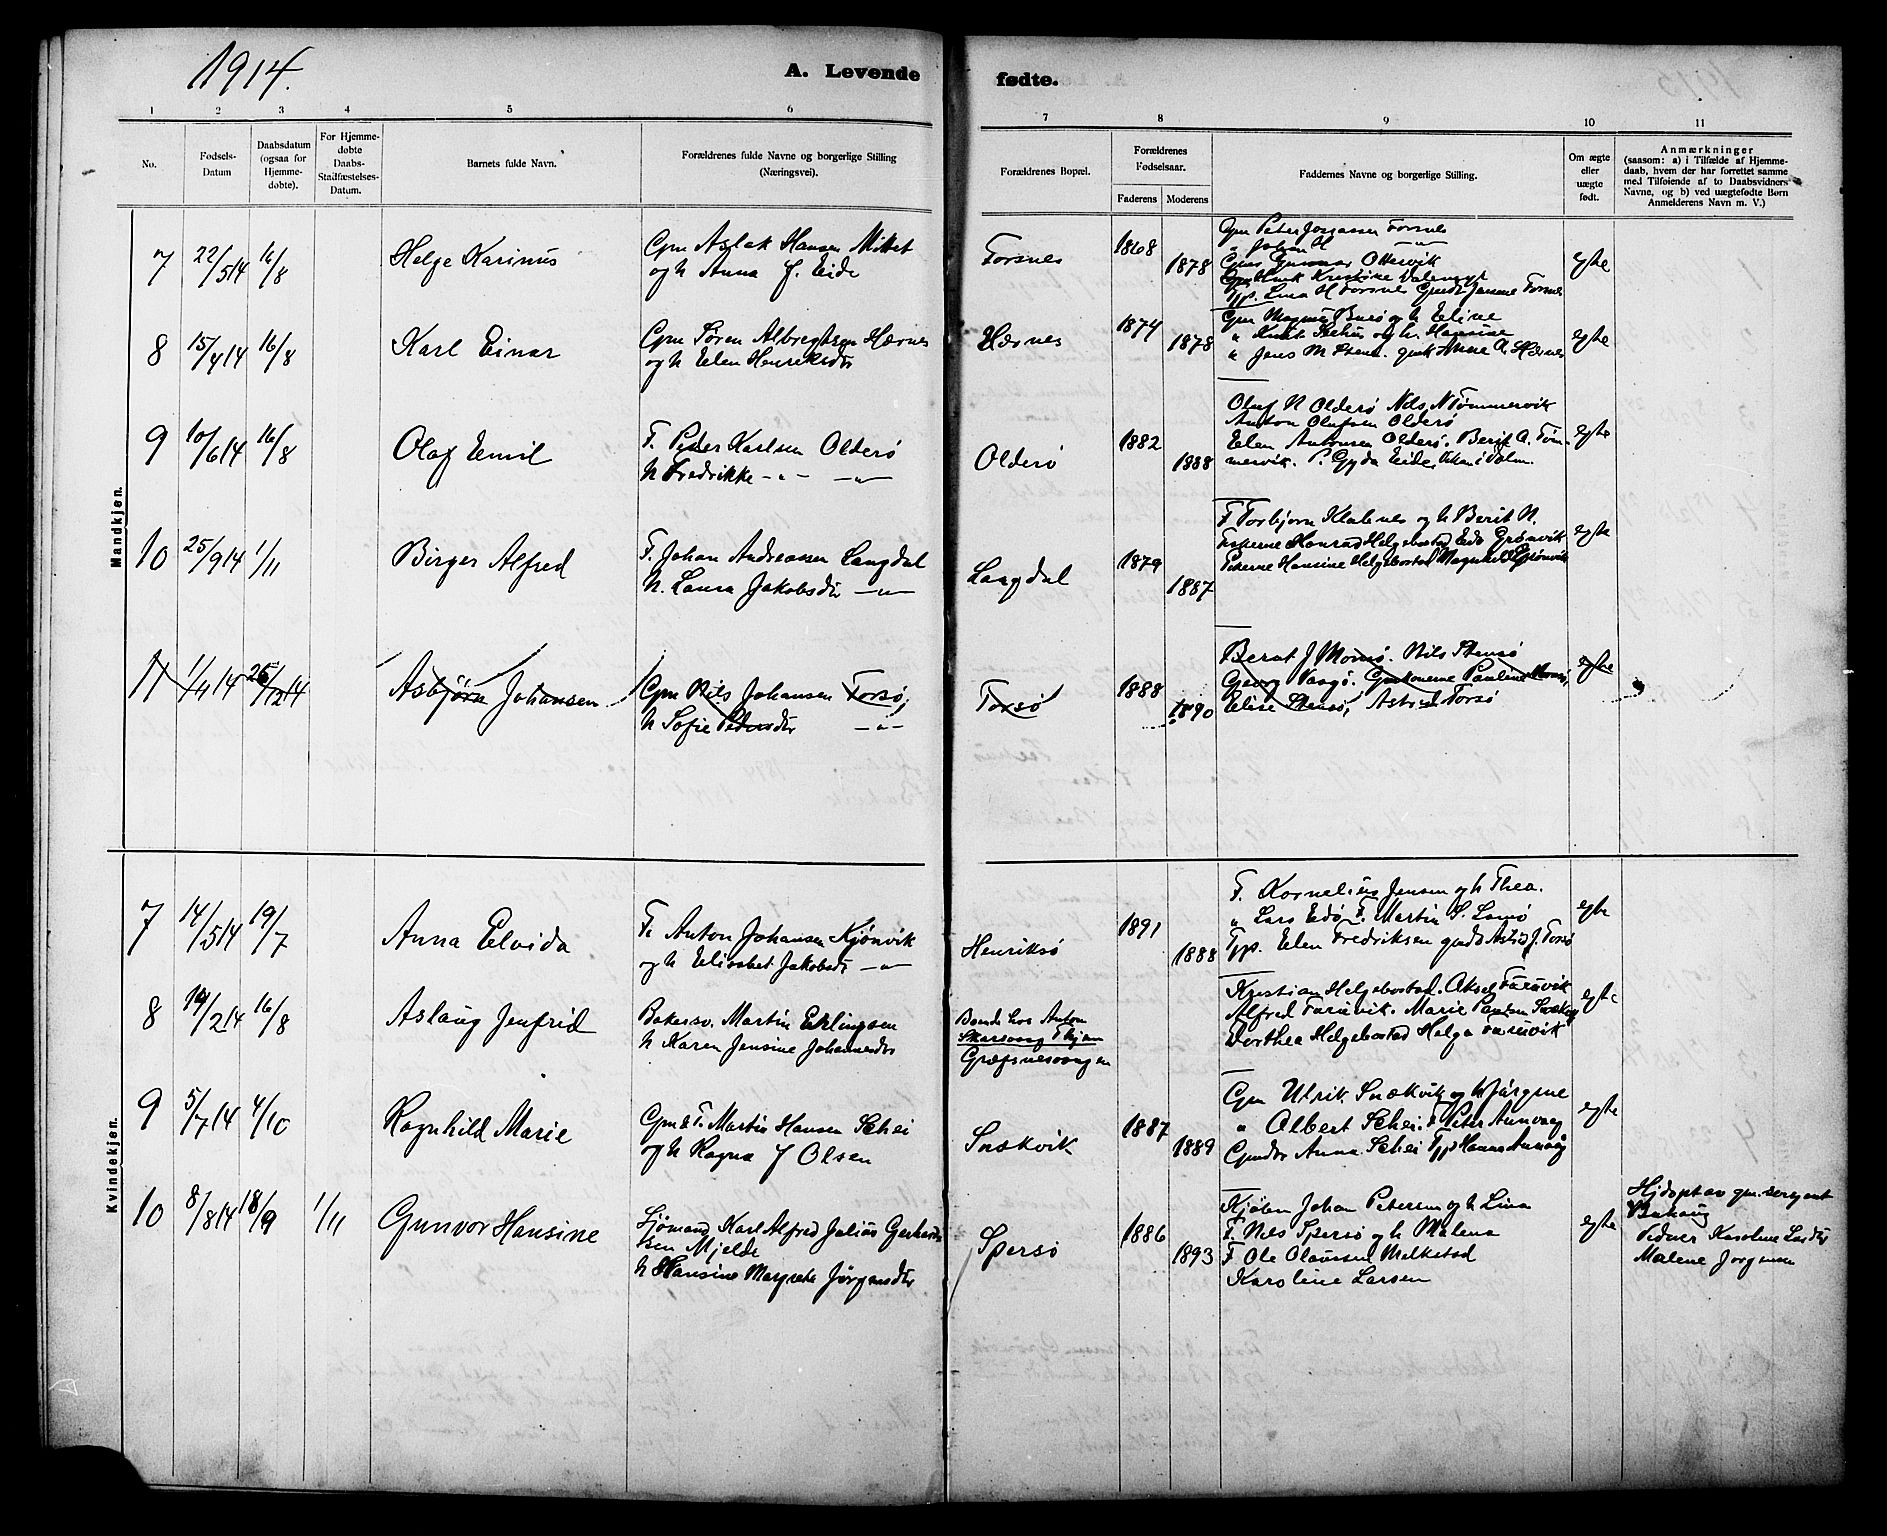 1914.
A. Levende fødte.
1 2 3 4 5 6 7 8 9 10 11
No.
Fødsels-
Datum
Daabsdatum
(ogsaa for
Hjemme-
døbte).
For Hjemme-
døbte
Daabs-
Stadfæstelses-
Datum.
Barnets fulde Navn.
Forældrenes fulde Navne og borgerlige Stilling
(Næringsvei).
Forældrenes Bopæl.
Forældrenes
Fødselsaar.
Faderens Moderens
Faddernes Navne og borgerlige Stilling.
Om ægte
eller
uægte
født.
Anmærkninger
(saasom: a) i Tilfælde af Hjemme-
daab, hvem der har forrettet samme
med Tilføiende af to Daabsvidners
Navne, og b) ved uægtefødte Børn
Anmelderens Navn m. V.)
Mandkjøn.
7 22/5 14 16/8 Helge Karinus
Gpm Aslak Hansen Mittet
og h Anna J. Eide
Forsnes 1868 1878
Gpm Peter Forsnes
" Johan H —"—
Gunnar Ottervik
Kristine
Lina H Forsnes Forsnes
egte
8 15/4 14 16/8 Karl Einar
Gpm Søren Albregtsen Hærnes
og h Elen Henriksdtr
Hærnes 1874 1878
Gpm Magnus og h Eline
" Knut og h. Hansine
" Jens M Anne A. Hærnes
egte
9 10/6 14 16/8 Olaf Emil
F. Peder Karlsen Olderø
h Fredrikke —"— —"—
Olderø 1882 1888
Oluf N Olderø Nils N Tømmervik
Anton Olufsen Olderø
Elen Antonsen Olderø. Berit A. Töm-
mervik. P. Gyda Eide
egte
10 25/9 14 1/11 Birger Alfred
F. Johan Andreassen Langdal
h. Laura Jakobsdtr —"—
Langdal 1879 1887
F Torbjørn og h Berit N.
Konrad Helgebostad Grønvik
Pikerne Hansine Helgebostad Grønvik
egte
11 1/11 14 26/12 14 Asbjørn Johansen
Gpm Nils Johansen Torsø,
h Sofie Pedersdtr —"—
Torsø 1888 1890
Bernt J Momsø. Nils Stensø
Georg Gpmkonerne Pauline Momsø,
Elise Stensø, Astrid Torsø
egte
Kvindekjøn.
7 14/5 14 19/7 Anna Elvida
F. Anton Johansen Kjønvik
og h Elisabet Jakobsdtr —"—
Henriksø 1891 1888
F. Kornelius Jensen og h Thea.
" Lars Edø F. Martin S. Lamø
Tjp. Elen Fredriksen gmdtr Astrid J. Torsø
egte
8 19/2 14 16/8 Aslaug Jenfrid
Bakersv. Martin Erlingsen
h Karen Jensine Johannesdtr
Bende hos Anton
Skarsvaag Thjem
Græfsnesvaagen
Kristian Helgebostad. Aksel Furuvik
Alfred Furuvik. Marie
Dorthea Helgebostad Helga Furuvik
egte
9 5/7 14 4/10 Ragnhild Marie
Gpm & F. Martin Hansen Schei
og h Ragna J Olsen
Snækvik 1887 1889
Gpm Ulrik Snækvik og h Jørgine
" Albert Schei. F Peter Aunvaag
Gpmdtr Anna Schei Tjp Hanna Aunvåg
egte
10 8/8 14 18/9 1/11 Gunvor Hansine
Sjømand Karl Alfred Julius Gerhard-
sen Mjelde
h Hansine Margrete Jørgensdtr
Spersø 1886 1893
Kjøbm Johan Petersen og h Lina
F. Nils Spersø og h Malena
F Ole Olaussen Melkstad
Karoline Larsen
egte
Hjdøpt av gm. sergant
Bukaug
Vidner Karoline Larsdtr
Malene Jørgensen